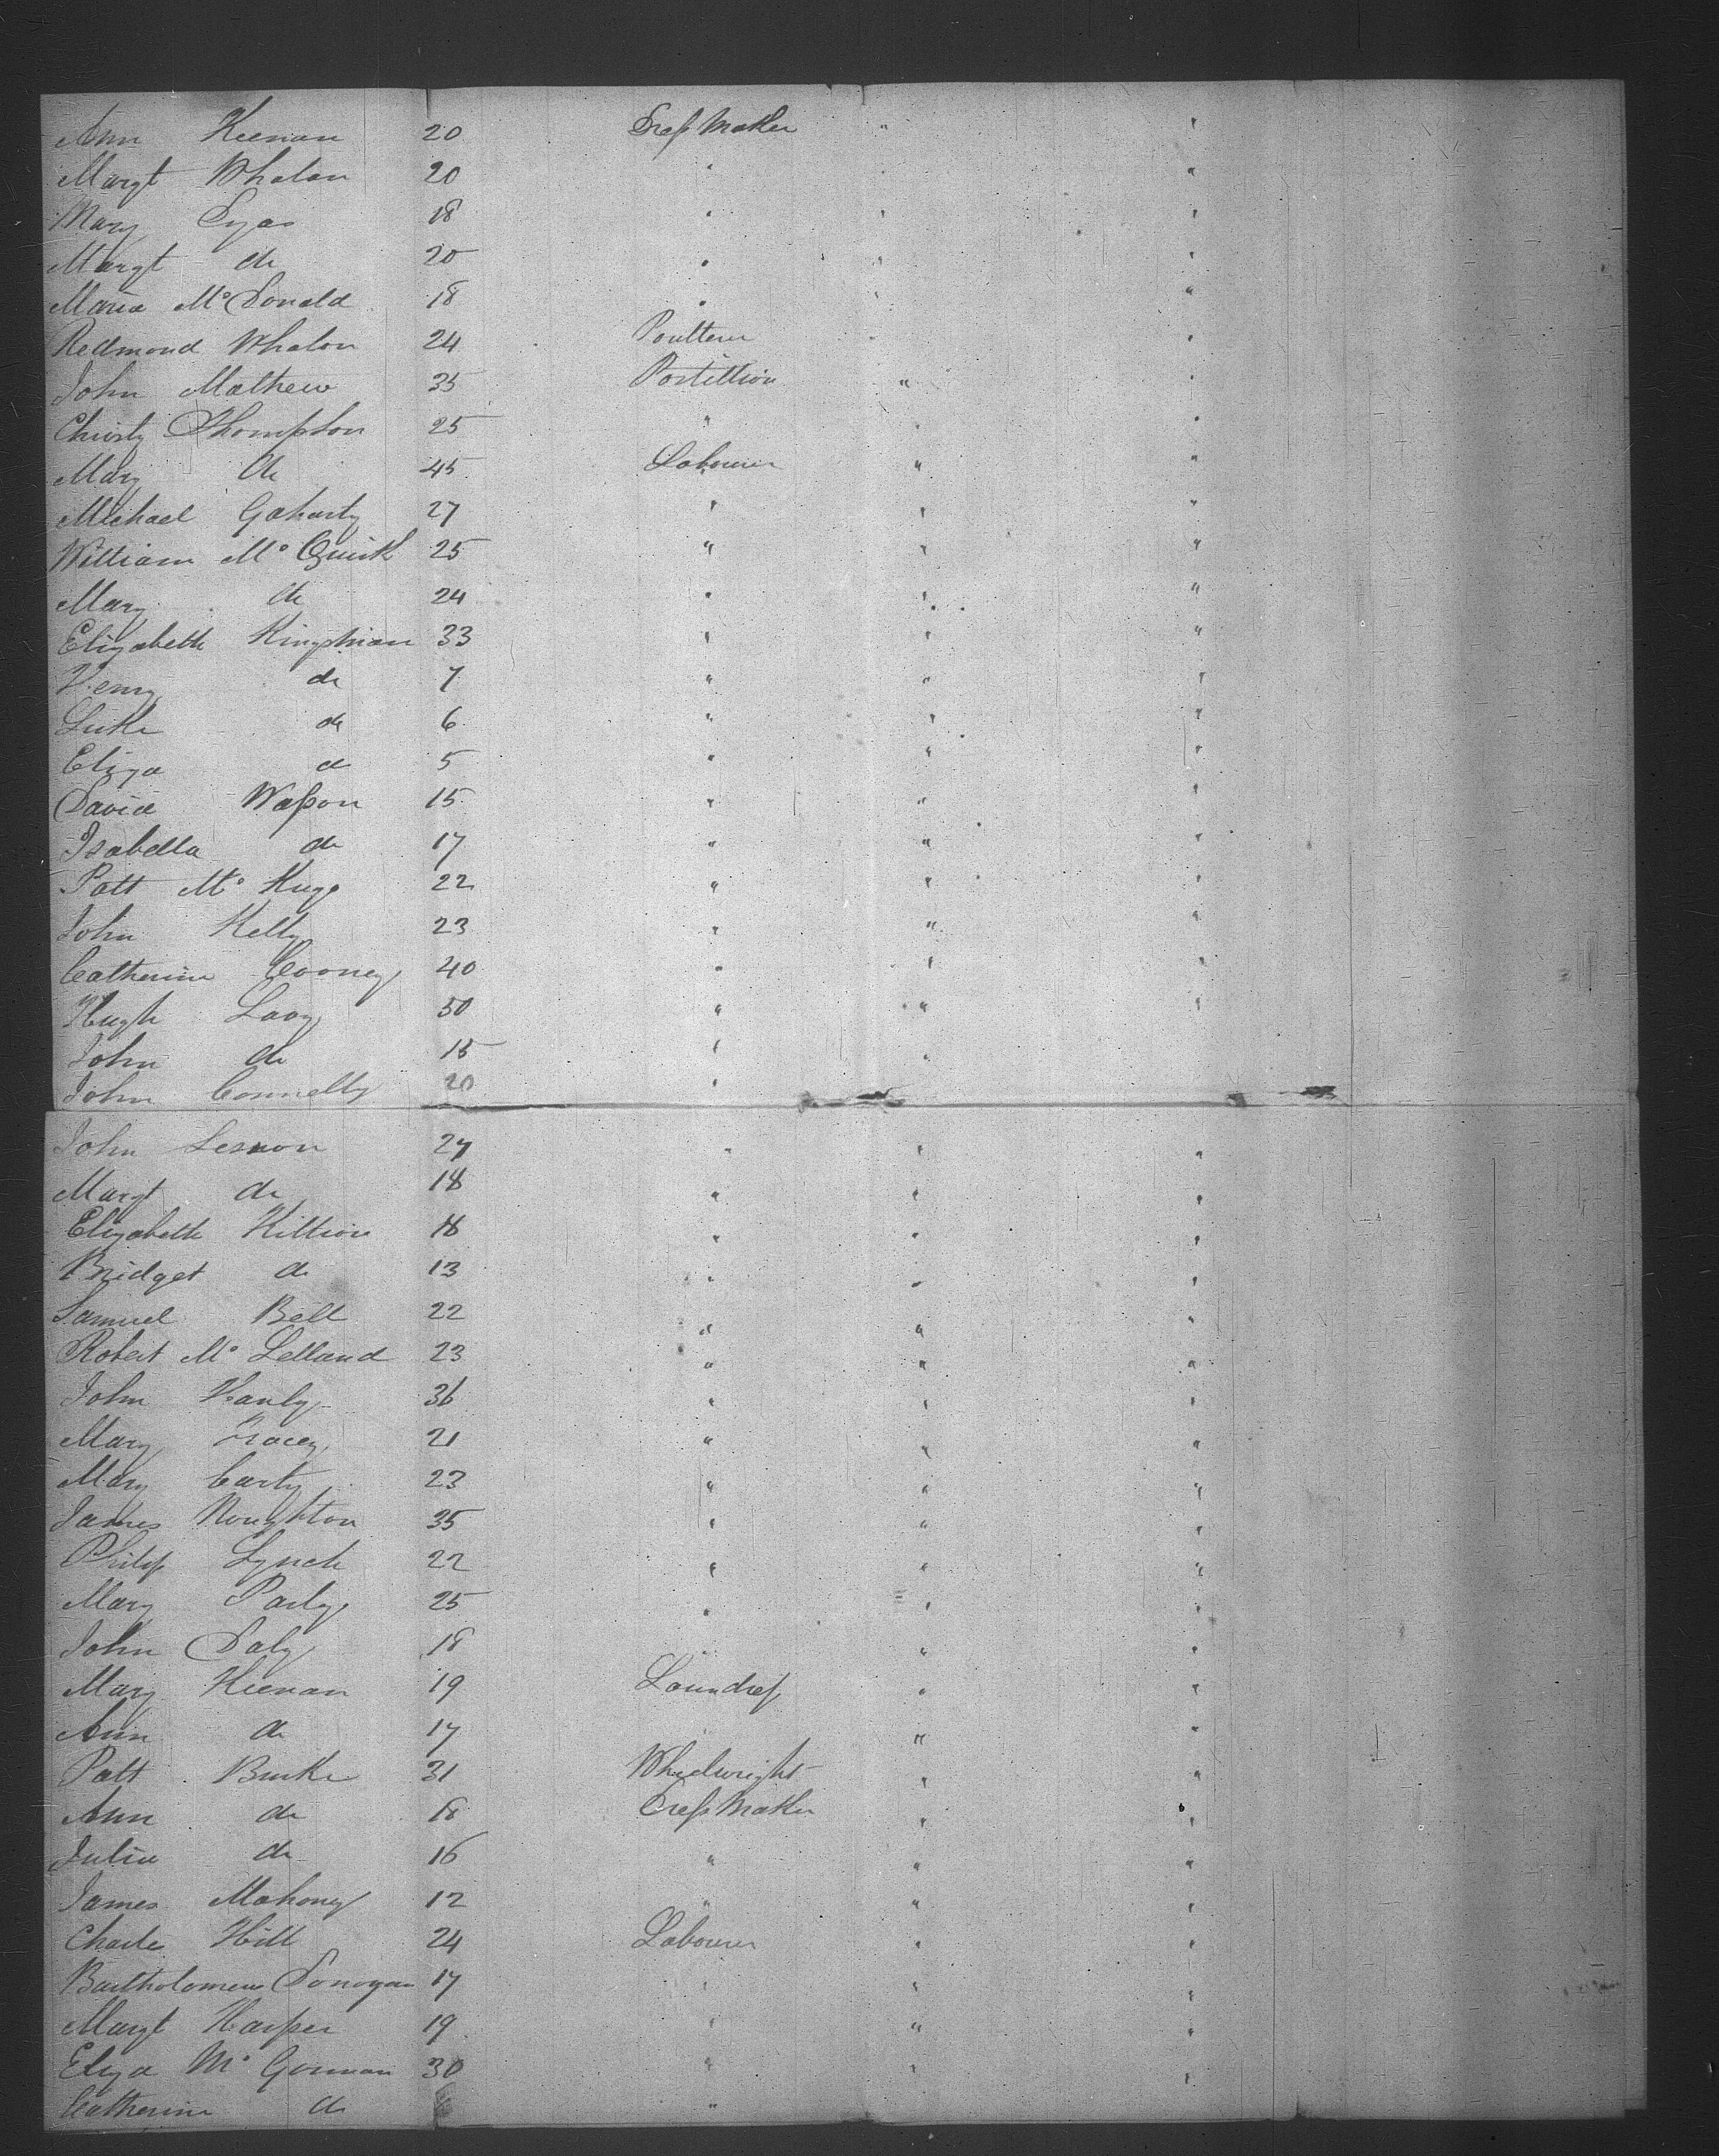 Ann Keenan 20 Dress Maker " "
Margt Whalan 20 " " "
Mary Dyas 18 " " "
Margt do 20 " " "
Maria Mc Donald 18 " " "
Redmond Whalon 24 Poulterer " "
John Mathew 35 Postillion " "
Christy Thompson 25 " " "
Mary do 45 Labourer " "
Michael Gaharty 27 " " "
William Mc Quirk 25 " " "
Mary do 24 " " "
Elizabeth Kingshian 33 " " "
Henry do 7 " " "
Luke do 6 " " "
Eliza do 5 " " "
David Wasson 15 " " "
Isabella do 17 " " "
Patt Mc Hugo 22 " " "
John Kelly 23 " " "
Catherine Cooney 40 " " "
Hugh Lavy 50 " " "
John do 15 " "
John Connelly 20 "
John Lennon 27 " " "
Margt do 18 " " "
Elizabeth Killion 18 " " "
Bridget do 13 " " "
Samuel Bell 22 " " "
Robert Mc Lelland 23 " " "
John Hanly 36 " " "
Mary Tracey 21 " " "
Mary Carty 23 " " "
James Noughton 35 " " "
Philip Lynch 22 " " "
Mary Parly 25 " " "
John Daly 18 " " "
Mary Keenan 19 Laundress " "
Ann do 17 " " "
Patt Burke 31 Wheelwright " "
Ann do 18 Dress Maker " "
Julia do 16 " " "
James Mahony 12 " " "
Charles Hill 24 Labourer " "
Bartholomew Donogan 17 " " "
Margt Harper 19 " " "
Eliza Mc Gorman 30 " " "
Catherine do "